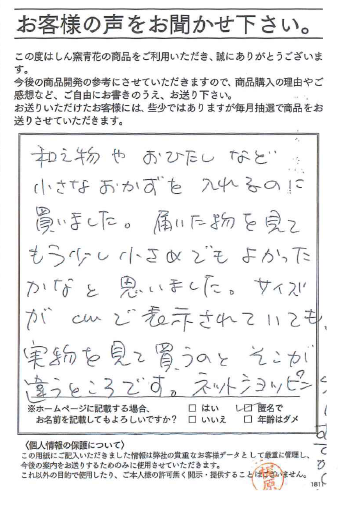 お客様の声をお聞かせ下さい。
この度はしん窯青花の商品をご利用いただき、誠にありがとうございます。
今後の商品開発の参考にさせていただきますので、商品購入の理由やご感想など、ご自由にお書きのうえ、お送り下さい。
お送りいただけたお客様には、些少ではありますが毎月抽選で商品をお送りさせていただきます。
和え物や おひたし など
小さな おかずを 入れるのに
買いました。届いた物を見て
もう少し小さめでもよかった
かなと思いました。サイズ
が cmで表示されていても、
実物を見て買うのと そこが
違うところです。ネットショッピン
※ホームページに記載する場合、
お名前を記載してもよろしいですか？
□ はい
□ いいえ
し□ 匿名で
□ 年齢はダメ
〈個人情報の保護について〉
この用紙にご記入いただきました情報は弊社の貴重なお客様データとして厳重に管理し、
今後の案内をお送りするためのみに使用させていただきます。
これ以外の目的で使用したり、ご本人様の許可無く開示・提供することはございません。
181